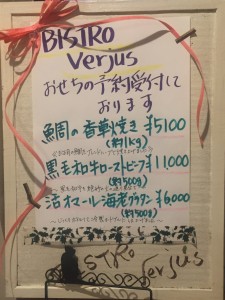 BISTRO
Verjus
おせちの予約受付して
おります
鯛周の香草焼き ¥5100
(約1kg)
黒毛和牛ローストビーフ ¥11,000
(約500g)
活オマール海老グラタン ¥6,000
(約500g)
BISTRO
Verjus